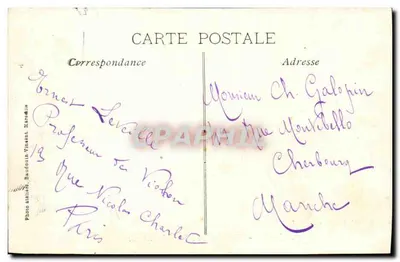 CARTE POSTALE
Correspondance
Adresse
Ernest
Professeur de Violon
13 Rue Nicolas Charlet
Paris
Monsieur Ch. Galopin
Rue Montebello
Cherbourg
Manche